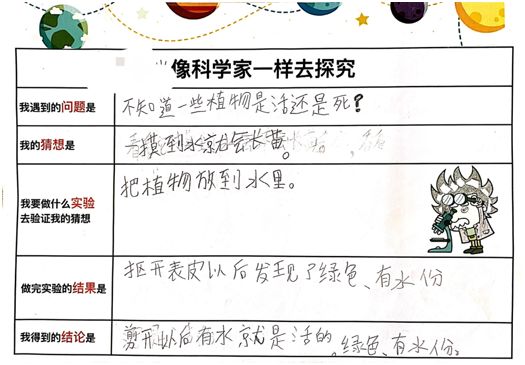 像科学家一样去探究
我遇到的问题是 不知道一些植物是活还是死?
我的猜想是 摸到水就会长黄。
我要做什么实验 把植物放到水里。
去验证我的猜想
做完实验的结果是 抠开表皮以后发现了绿色、有水份
我得到的结论是 剪开以后有水就是活的,绿色、有水份。